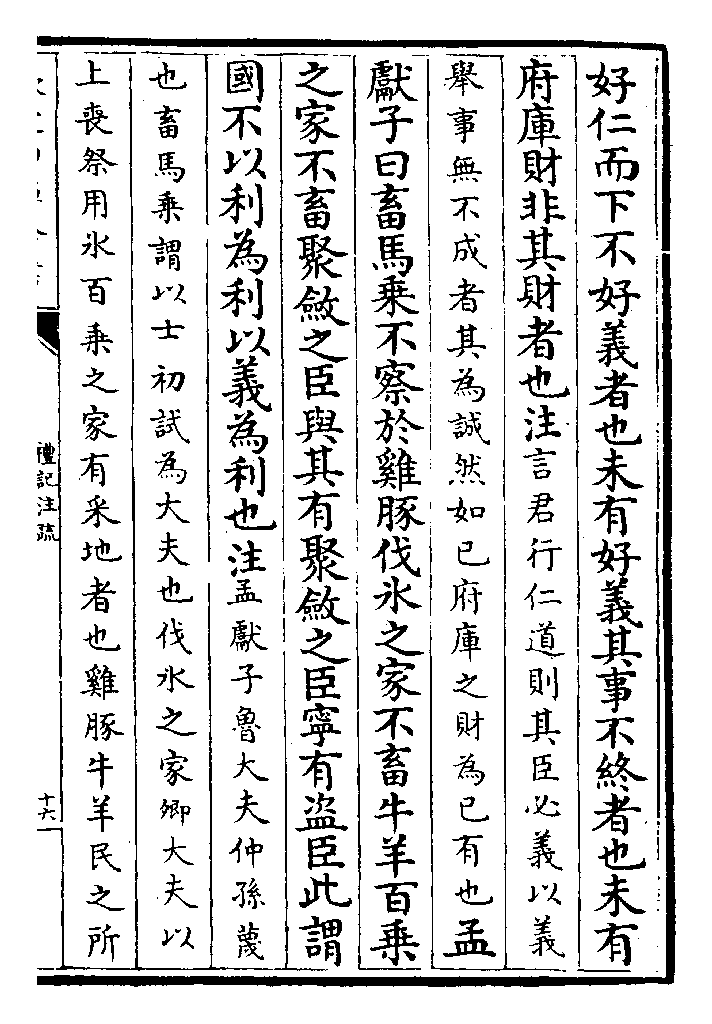 好仁而下不好義者也未有好義其事不終者也未有
府庫財非其財者也注言君行仁道則其臣必義以義
舉事無不成者其為誠然如已府庫之財為已有也孟
獻子曰畜馬乗不察於雞豚伐氷之家不畜牛羊百乗
之家不畜聚斂之臣與其有聚斂之臣寧有盗臣此謂
國不以利為利以義為利也注孟獻子魯大夫仲孫蔑
也畜馬乗謂以士初試為大夫也伐氷之家卿大夫以
上喪祭用氷百乗之家有采地者也雞豚牛羊民之所
禮記注疏
十六